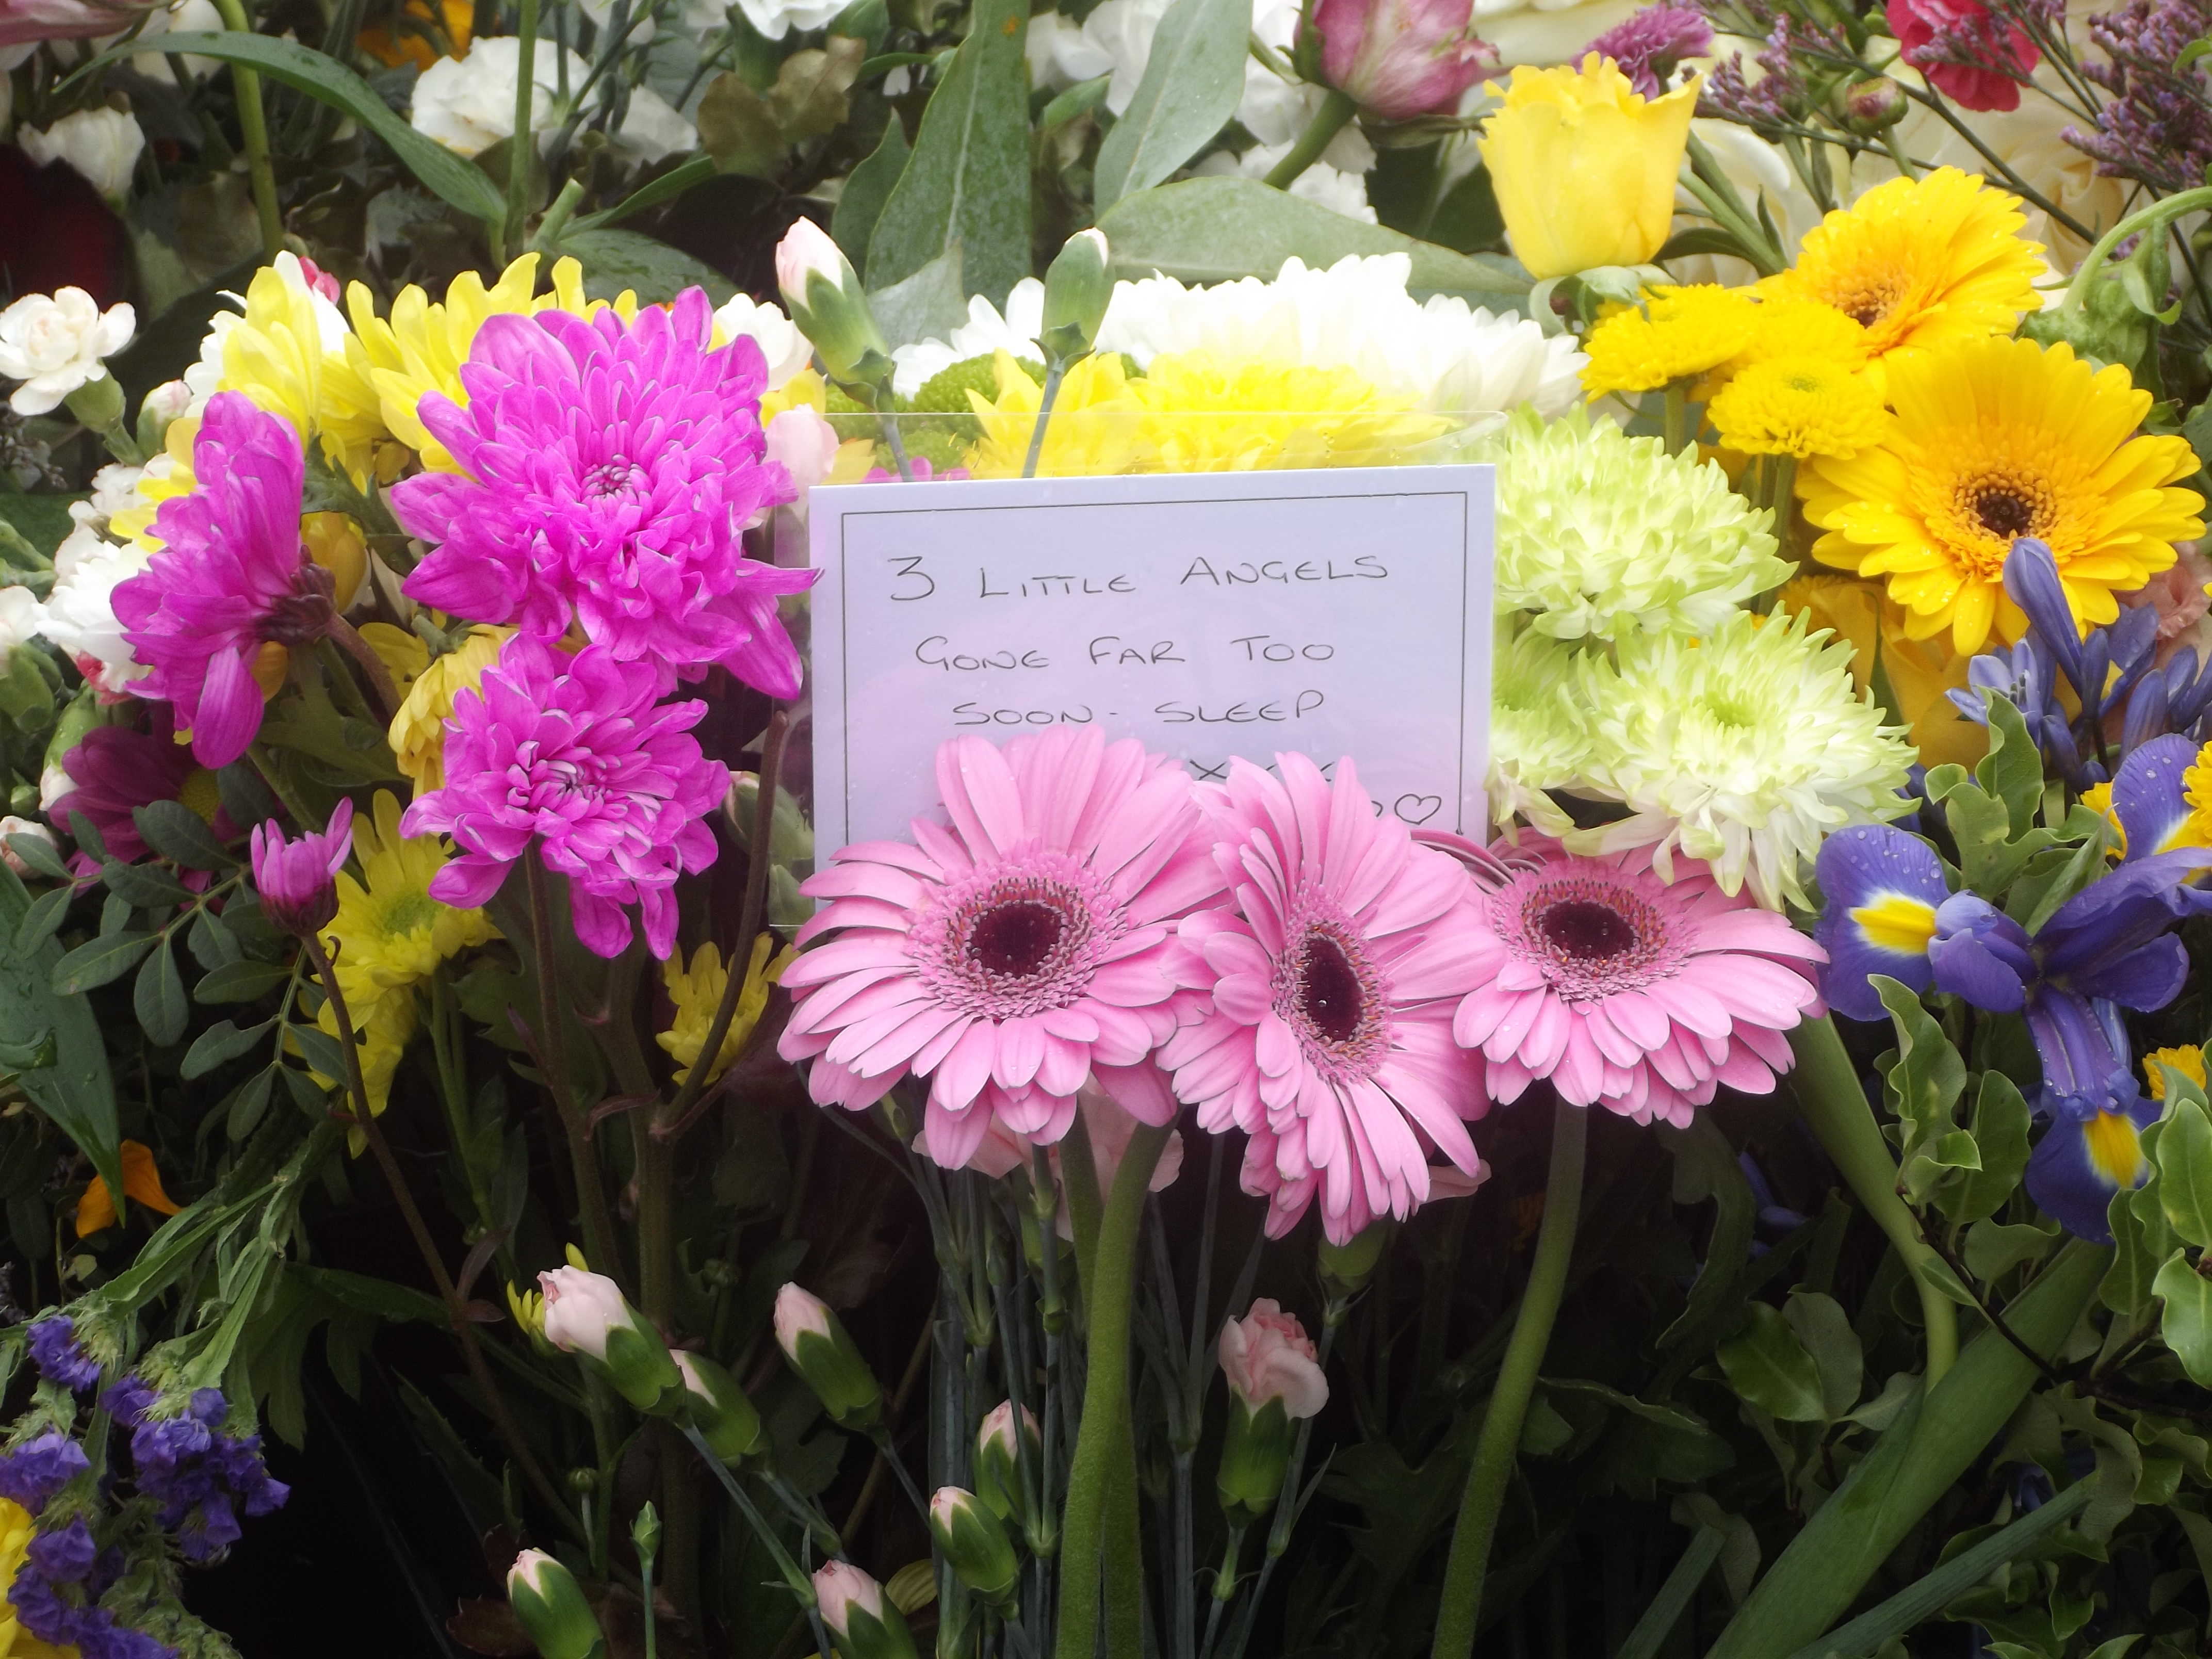 3 LITTLE ANGELS
GONE FAR TOO
SOON - SLEEP
XXX
♡